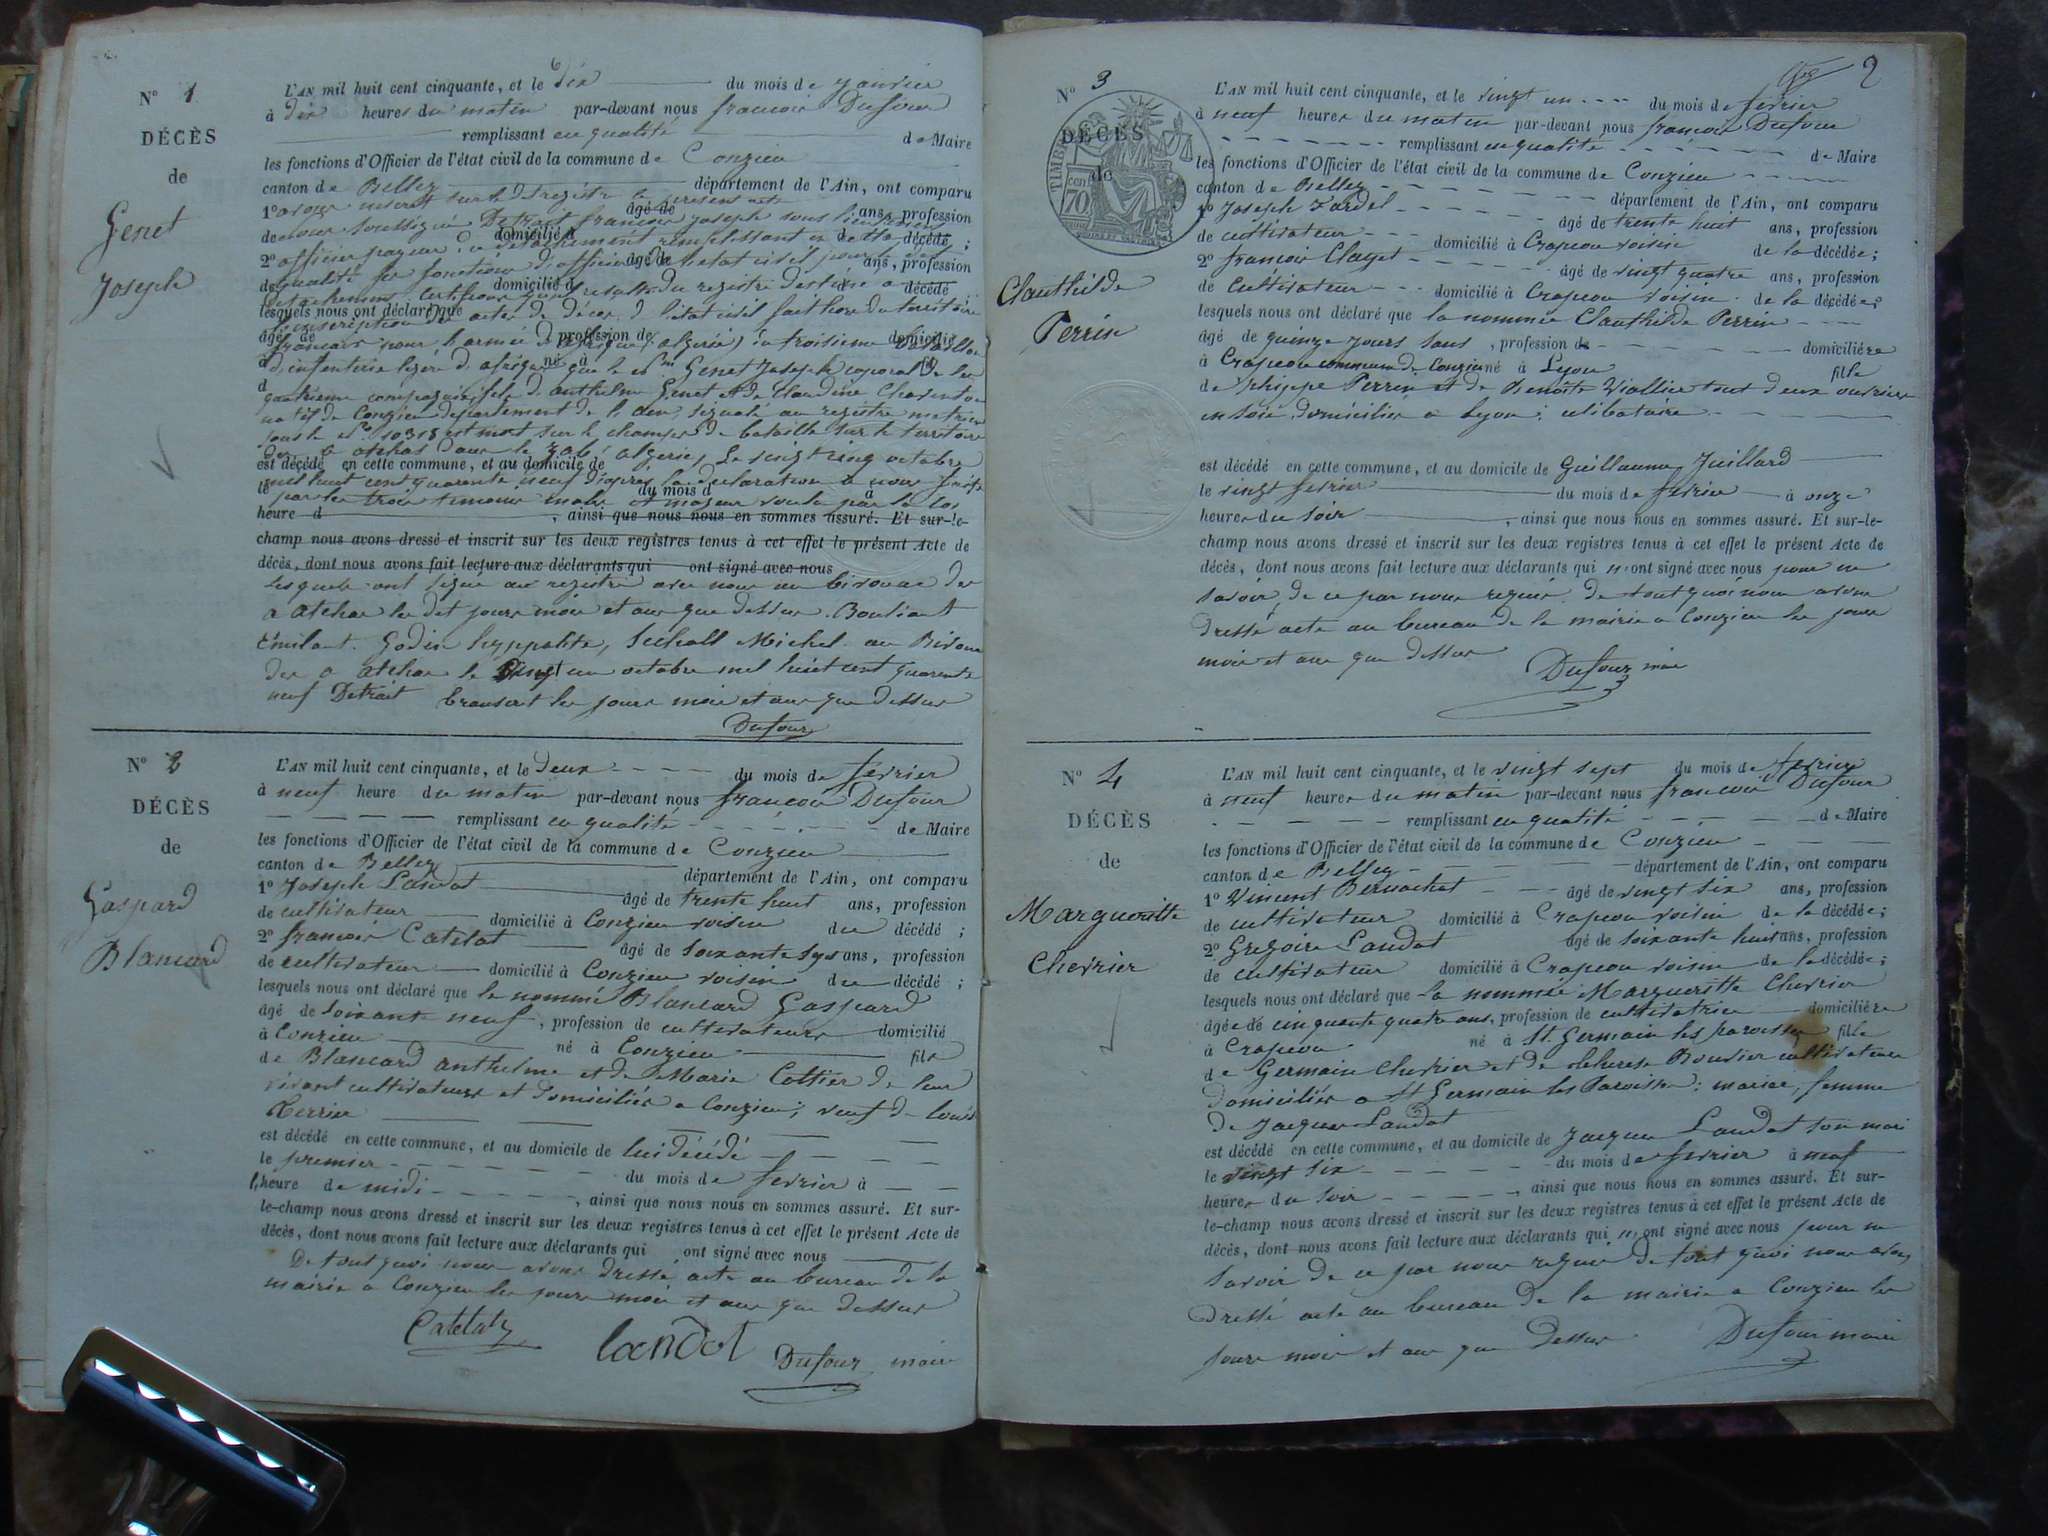 N° 1
DÉCÈS
de
Genet
Joseph
L'AN mil huit cent cinquante, et le dix du mois de janvier
à dix heures du matin par-devant nous françois Dufour
remplissant en qualité de Maire
les fonctions d'Officier de l'état civil de la commune de Conzieu
canton de Belley département de l'Ain, ont comparu
1° avons inscrit sur le registre le present acte
âgé de ans, profession
de nous soussigné Detrait françois joseph sous lieutenant
domicilié à décédé ;
2° officier payeur du detachement remplissant
âgé de ans, profession
de qualité les fonctions d'officier de l'etat civil pour
domicilié à décédé
detachement certifions qu'il resulte du registre destiné a
lesquels nous ont déclaré que
l'inscription des actes de décès de l'etat civil fait hors du territoire
âgé de profession de domicilié
francais pour l'armée d'afrique (algérie) du troisieme bataillon
né à
d'infanterie legere d'afrique que le Genet Joseph caporal de la
quatrieme compagnie, fils d'anthelme Genet et de Claudine
natif de Conzieu departement de l'ain, signalé au registre matricule
sous le N° 10318 est mort sur le champ de bataille sur le territoire
algerie, Le vingt cinq octobre
est décédé en cette commune, et au domicile de
mil huit cent quarante neuf d'apres la declaration a nous faite
le du mois d à
par les trois temoins male et majeur voulu par la loi
heure d , ainsi que nous nous en sommes assuré. Et sur-le-
champ nous avons dressé et inscrit sur les deux registres tenus à cet effet le présent Acte de
décès, dont nous avons fait lecture aux déclarants qui ont signé avec nous
Lesquels ont signé au registre avec nous au bivouac de
les dit jours mois et an que dessus. Bouliant
Godin hyppolite, Michel au Bivouac
le vingt octobre mil huit cent quarante
neuf Detrait transcrit les jours mois et an que dessus
Dufour
N° 2
DÉCÈS
de
Gaspard
Blancard
L'AN mil huit cent cinquante, et le deux du mois de fevrier
à neuf heure du matin par-devant nous françois Dufour
remplissant en qualité de Maire
les fonctions d'Officier de l'état civil de la commune de Conzieu
canton de Belley département de l'Ain, ont comparu
1° Joseph Landot âgé de trente huit ans, profession
de cultivateur domicilié à Conzieu voisin du décédé ;
2° françois Catelat âgé de soixante ans, profession
de cultivateur domicilié à Conzieu voisin du décédé ;
lesquels nous ont déclaré que le nommé Blancard Gaspard
âgé de soixante neuf, profession de cultivateur domicilié
à Conzieu né à Conzieu fils
de Blancard anthelme et de Marie Cottier de leur
vivant cultivateurs et domiciliés a Conzieu; veuf de louise
Perrin
est décédé en cette commune, et au domicile de lui décédé
le premier du mois de fevrier à
heure de midi, ainsi que nous nous en sommes assuré. Et sur-
le-champ nous avons dressé et inscrit sur les deux registres tenus à cet effet le présent Acte de
décès, dont nous avons fait lecture aux déclarants qui ont signé avec nous
De tout quoi nous avons dressé acte au bureau de la
mairie a Conzieu les jours mois et an que dessus
Catelat
landot
Dufour maire
2
N° 3
DÉCÈS
de
TIMBRE
70 cent
Clauthilde
Perrin
L'AN mil huit cent cinquante, et le vingt un du mois de fevrier
à neuf heures du matin par-devant nous françois Dufour
remplissant en qualité de Maire
les fonctions d'Officier de l'état civil de la commune de Conzieu
canton de Belley département de l'Ain, ont comparu
1° Joseph Tardel âgé de trente huit ans, profession
de cultivateur domicilié à Crapeou voisin de la décédée;
2° françois Clayet âgé de vingt quatre ans, profession
de cultivateur domicilié à Crapeou voisin de la décédée;
lesquels nous ont déclaré que la nommée Clauthilde Perrin
âgé de quinze jours sans, profession de domiciliée
à Crapeou commune de Conzieu né à Lyon fille
de phippe Perrin et de Benoite Viallier tout deux ouvriers
en soie domiciliés a Lyon; celibataire
est décédé en cette commune, et au domicile de Guillaume Juillard
le vingt fevrier du mois de fevrier à onze
heures du soir, ainsi que nous nous en sommes assuré. Et sur-le-
champ nous avons dressé et inscrit sur les deux registres tenus à cet effet le présent Acte de
décès, dont nous avons fait lecture aux déclarants qui n'ont signé avec nous pour ne
savoir de ce par nous requis de tout quoi nous avons
dressé acte au bureau de la mairie a Conzieu les jours
mois et an que dessus
Dufour maire
N° 4
DÉCÈS
de
Margueritte
Chevrier
L'AN mil huit cent cinquante, et le vingt sept du mois de fevrier
à neuf heures du matin par-devant nous françois Dufour
remplissant en qualité de Maire
les fonctions d'Officier de l'état civil de la commune de Conzieu
canton de Belley département de l'Ain, ont comparu
1° Vincent Bernachot âgé de vingt six ans, profession
de cultivateur domicilié à Crapeou voisin de la décédée;
2° Gregoire Landot âgé de soixante huit ans, profession
de cultivateur domicilié à Crapeou voisin de la décédée;
lesquels nous ont déclaré que la nommée Margueritte Chevrier
âgée de cinquante quatre ans, profession de cultivatrice domiciliée
à Crapeou né à St Germain les paroisses fille
de Germain Chevrier et de therese Bouvier cultivateurs
domiciliés a St Germain les Paroisses; mariée, femme
de Jacques Landot
est décédé en cette commune, et au domicile de Jacques Landot son mari
le vingt six du mois de fevrier à neuf
heures du soir, ainsi que nous nous en sommes assuré. Et sur-
le-champ nous avons dressé et inscrit sur les deux registres tenus à cet effet le présent Acte de
décès, dont nous avons fait lecture aux déclarants qui n'ont signé avec nous pour ne
savoir de ce par nous requis de tout quoi nous avons
dressé acte au bureau de la mairie a Conzieu les
jours mois et an que dessus Dufour maire